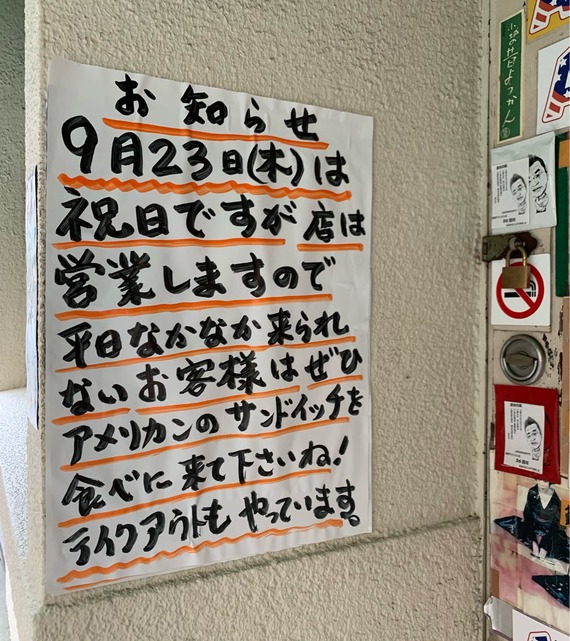 お知らせ
9月23日(木)は
祝日ですが店は
営業しますので
平日なかなか来られ
ないお客様はぜひ
アメリカンのサンドイッチを
食べに来て下さいね!
テイクアウトもやっています。